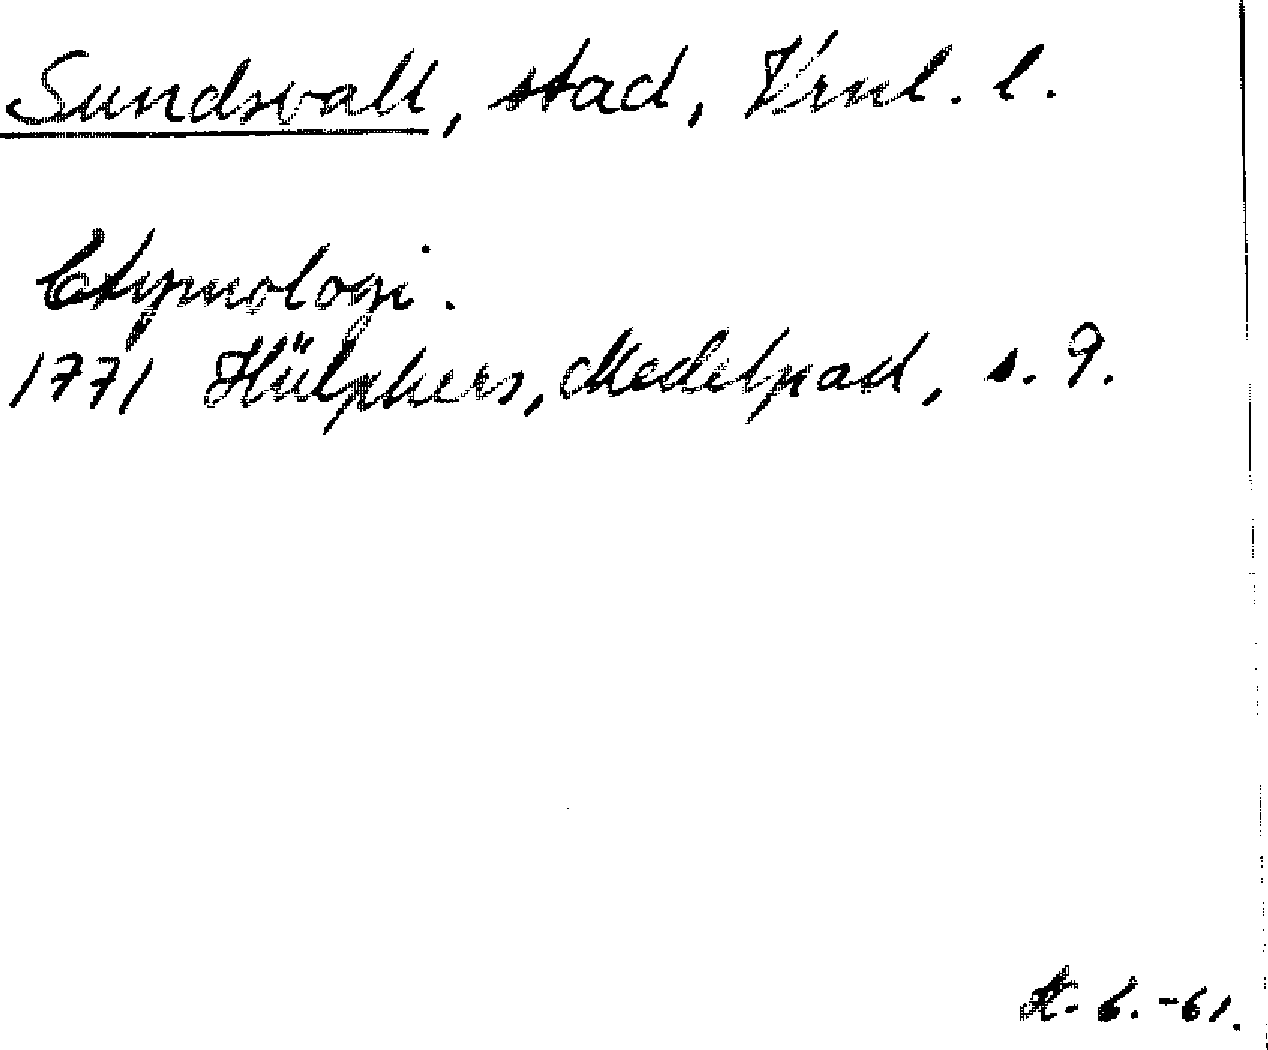 Sundsvall, stad, Vrnl. l.
Etymologi.
1771 Hülphers, Medelpad, s. 9.
6. -61.